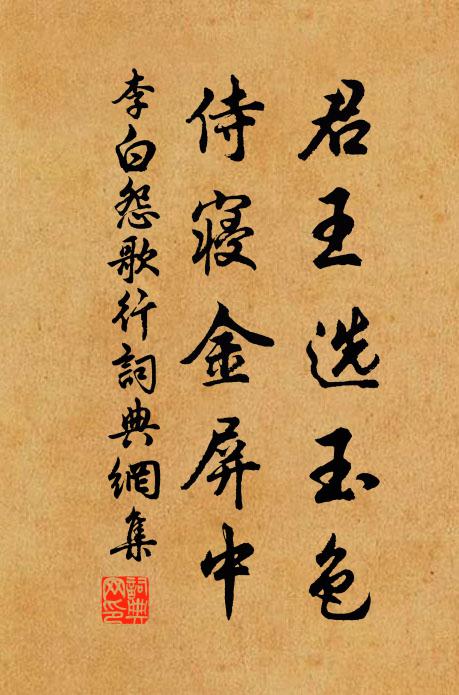 君王选玉色
侍寝金屏中
李白怨歌行詞典網集
詞典网印